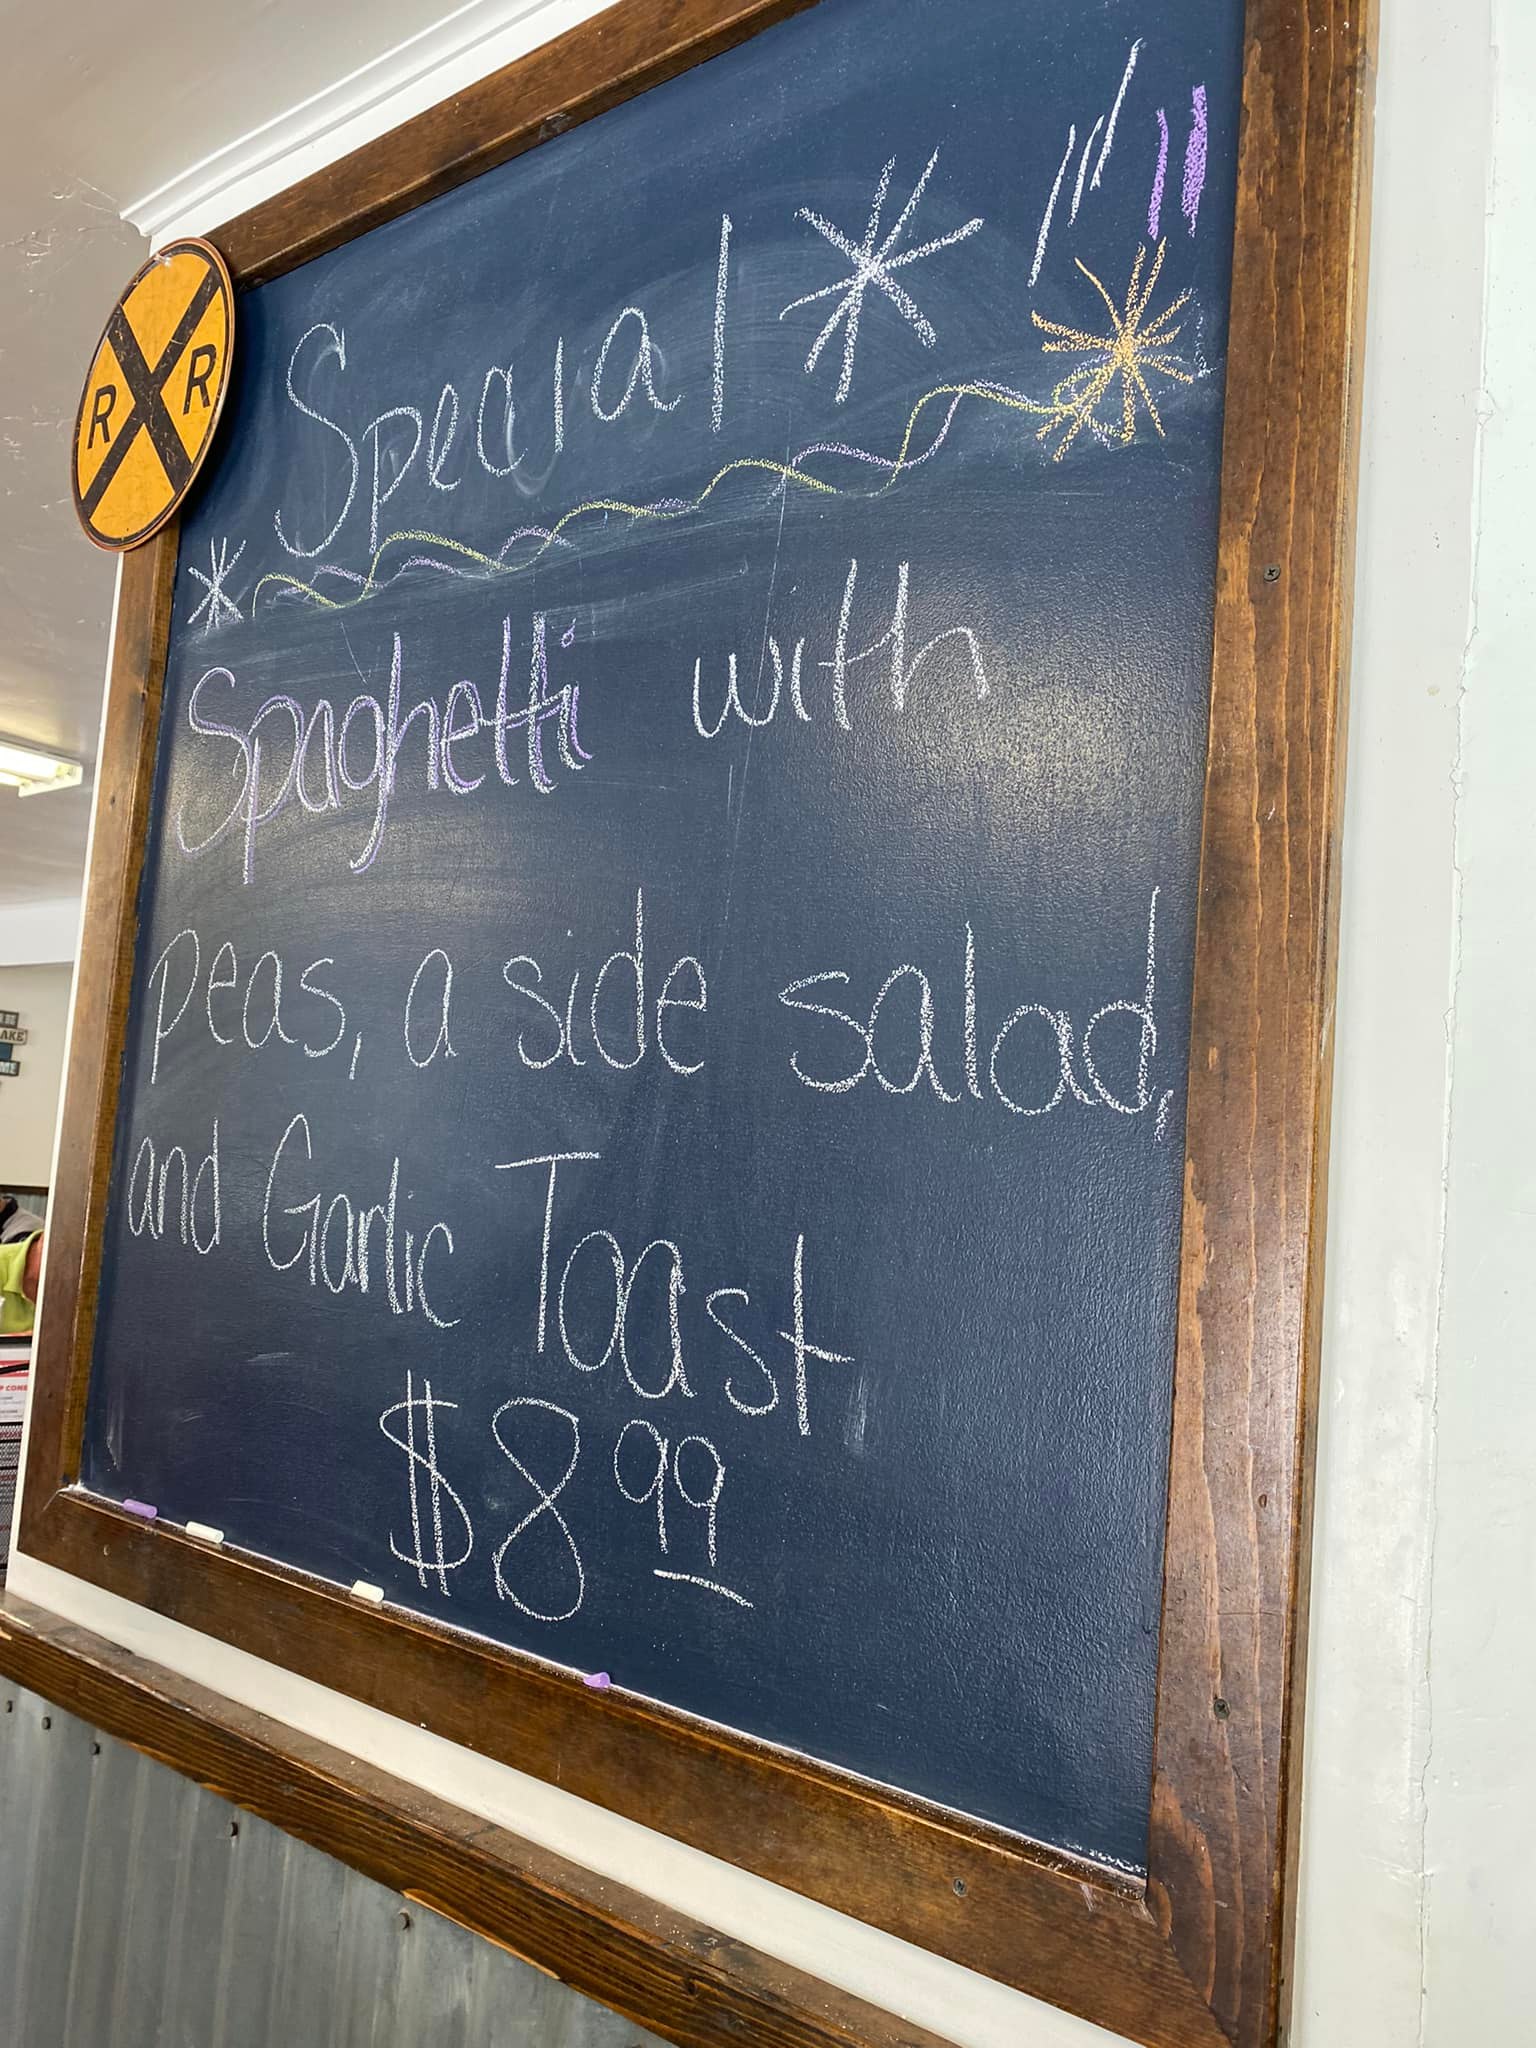 Special
R R
Spaghetti with
peas, a side salad,
and Garlic Toast
$8.99
AKE
P COMB